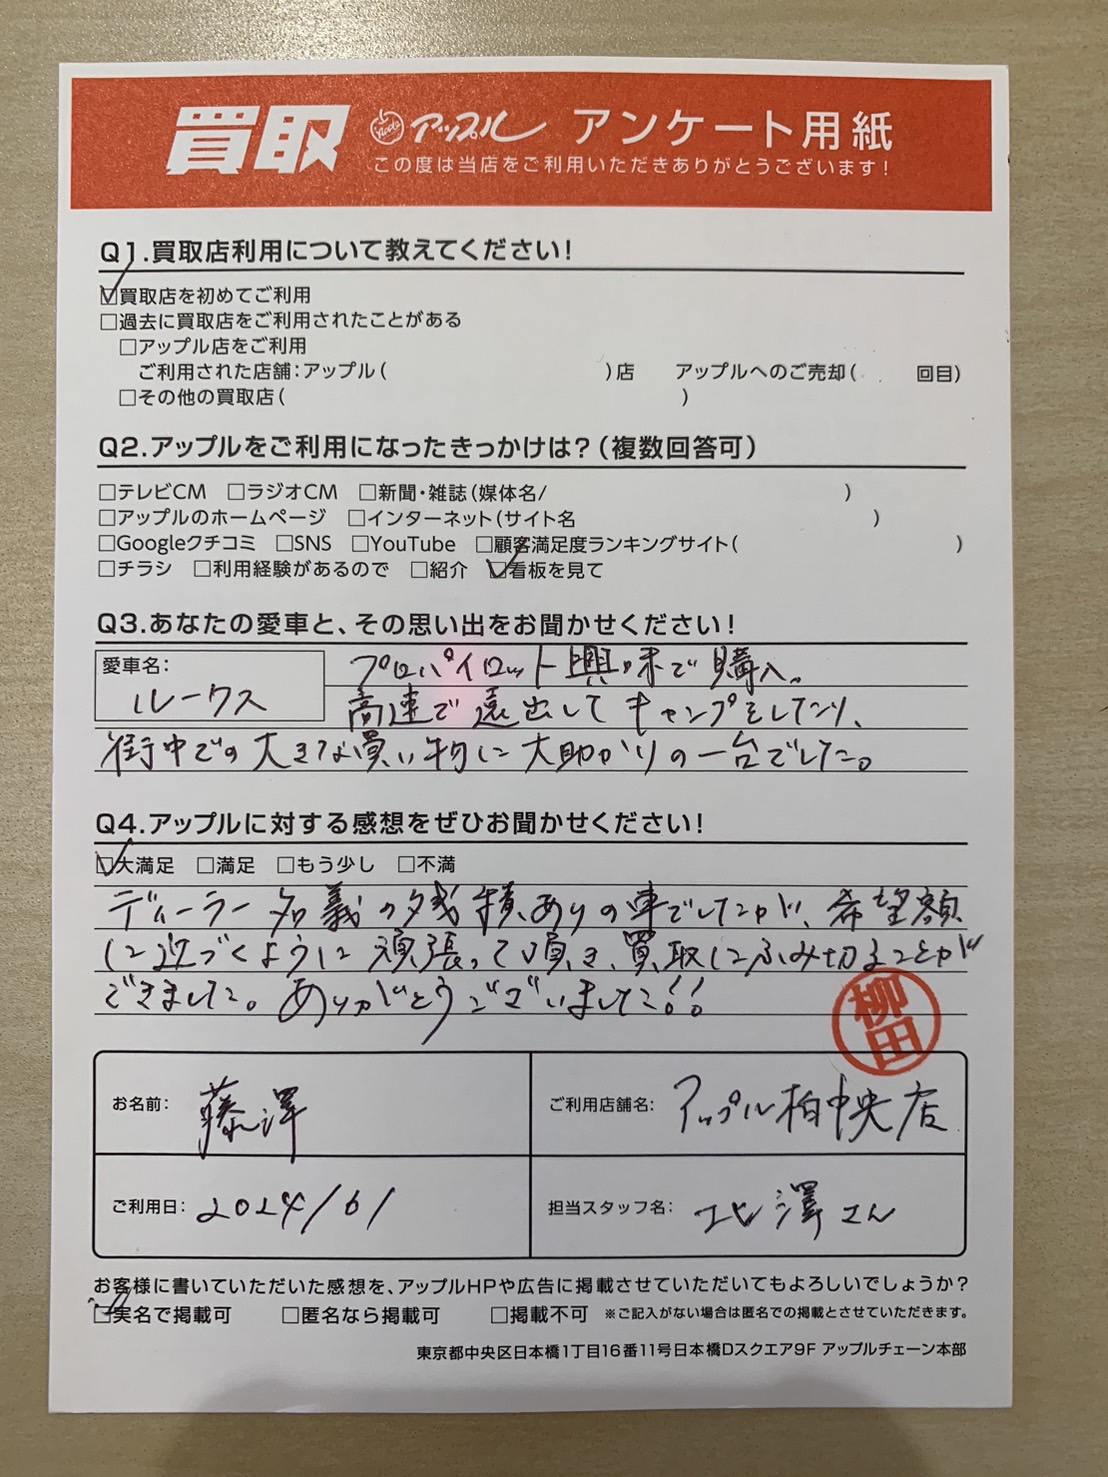 買取 Apple アップル アンケート用紙
この度は当店をご利用いただきありがとうございます!
Q1.買取店利用について教えてください!
☑買取店を初めてご利用
□過去に買取店をご利用されたことがある
□アップル店をご利用
ご利用された店舗:アップル( )店 アップルへのご売却( 回目)
□その他の買取店( )
Q2.アップルをご利用になったきっかけは?(複数回答可)
□テレビCM □ラジオCM □新聞・雑誌(媒体名/ )
□アップルのホームページ □インターネット(サイト名 )
□Googleクチコミ □SNS □YouTube □顧客満足度ランキングサイト( )
□チラシ □利用経験があるので □紹介 ☑看板を見て
Q3.あなたの愛車と、その思い出をお聞かせください!
愛車名:
ルークス
プロパイロット興味で購入。
高速で遠出してキャンプをしたり、
街中での大きな買い物に大助かりの一台でした。
Q4.アップルに対する感想をぜひお聞かせください!
☑大満足 □満足 □もう少し □不満
ディーラー名義の残積ありの車でしたが、希望額
に近づくように頑張って頂き、買取にふみ切ることが
できました。ありがとうございました!!
柳田
お名前: 藤澤
ご利用店舗名: アップル柏中央店
ご利用日: 2024/6/
担当スタッフ名: 北澤さん
お客様に書いていただいた感想を、アップルHPや広告に掲載させていただいてもよろしいでしょうか?
☑実名で掲載可 □匿名なら掲載可 □掲載不可 ※ご記入がない場合は匿名での掲載とさせていただきます。
東京都中央区日本橋1丁目16番11号日本橋Dスクエア9F アップルチェーン本部